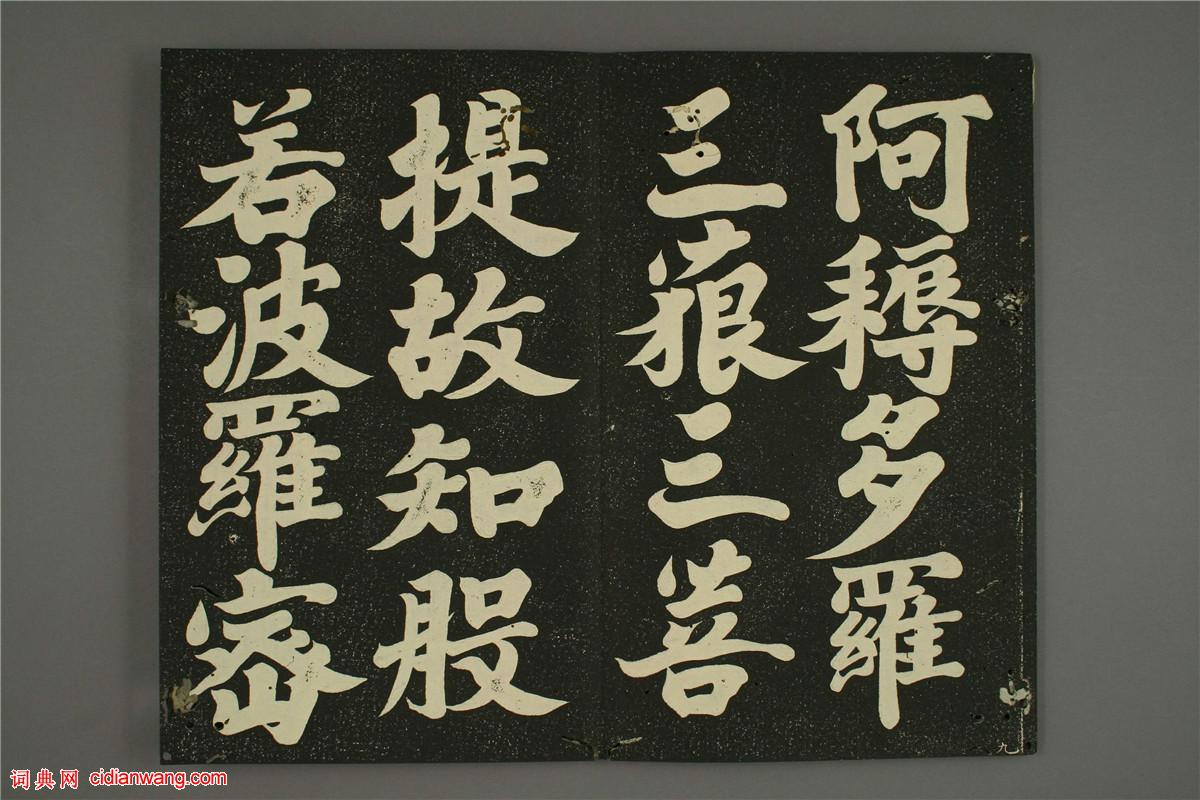 阿耨多羅
三藐三菩
提故知般
若波羅密
九
词典网 cidianwang.com